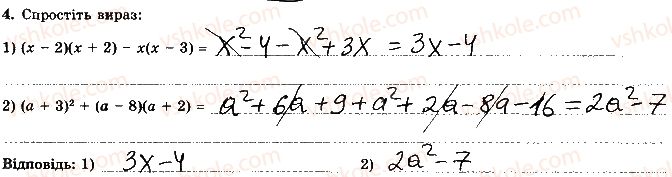 4. Спростіть вираз:
1) (x − 2)(x + 2) − x(x − 3) = x² − 4 − x² + 3x = 3x − 4
2) (a + 3)² + (a − 8)(a + 2) = a² + 6a + 9 + a² + 2a − 8a − 16 = 2a² − 7
Відповідь: 1) 3x − 4 2) 2a² − 7